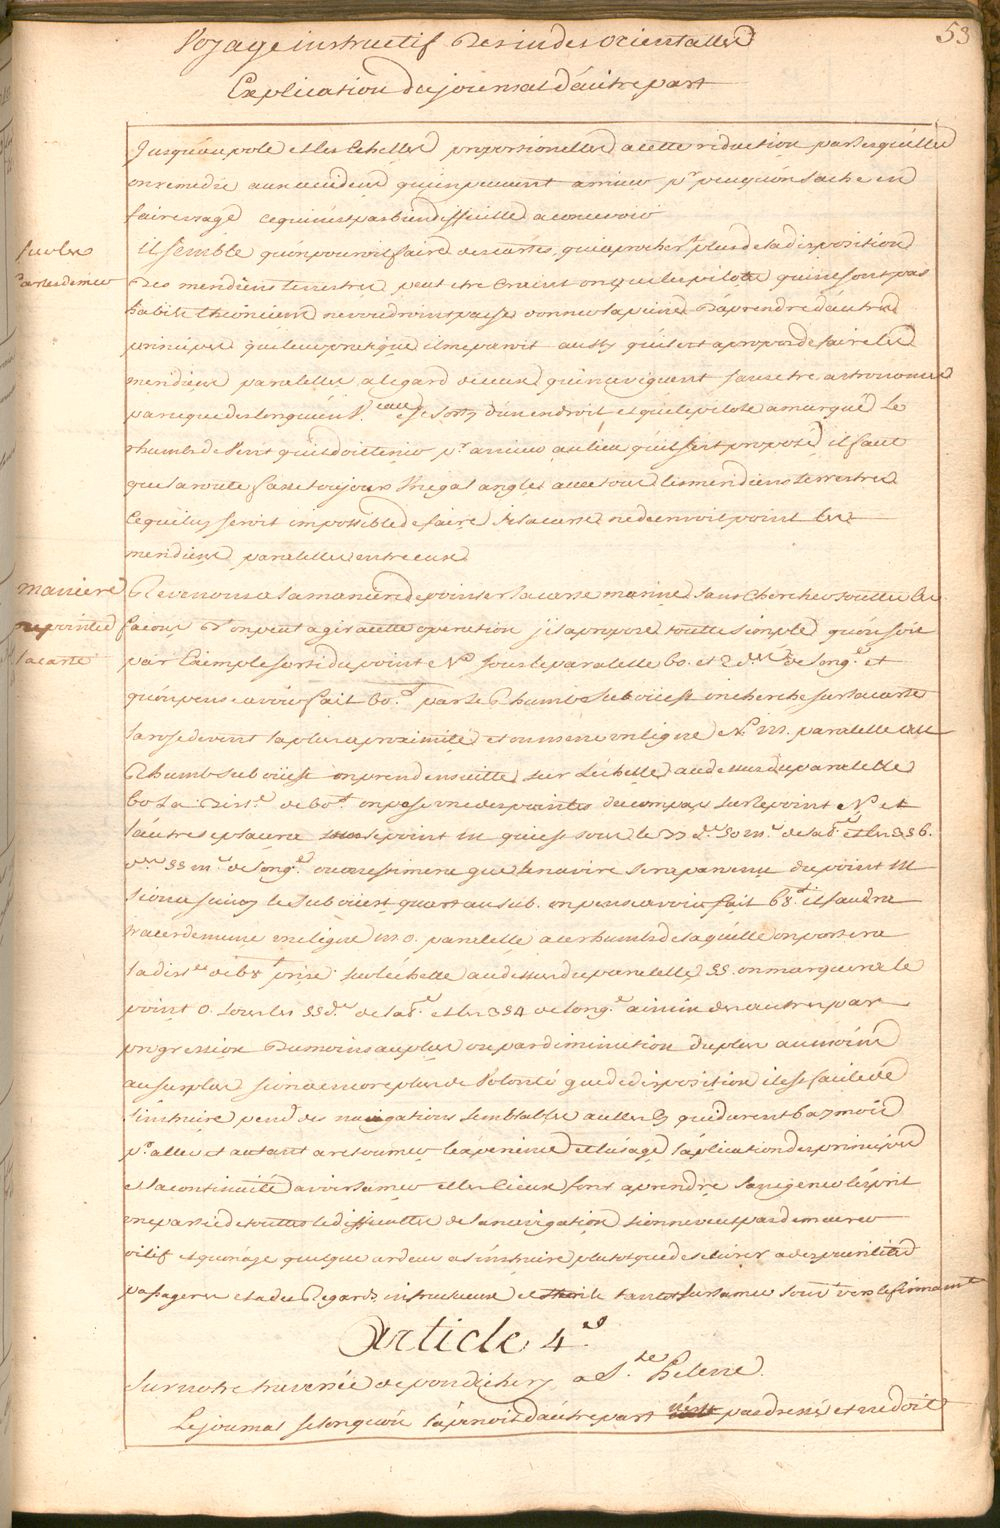 53
Voyage instructif Des indes orientalles
Explication du journal d'autre part
Jusqu'au pole et les Echelles proportionelles a cette reduction par lesquelles
on remedie aux accidens qui en peuvent arriver pr peu qu'on sache en
faire usage ce qui n'est pas bien difficille a concevoir
Sur les
cartes de mer
il semble qu'on pouroit faire des cartes qui aprocherst plus de la disposition
Des meridiens terrestres peut etre craint on que les pilotes qui ne sont pas
habils theoriciens ne voudroint pas se donner la peine D'aprendre d'autres
principes que leur pratique il me paroit aussy qu'il est apropos de faire les
meridiens paralelles a l'egard de ceux qui naviguent sans etre astronomes
parceque des lorsqu'un Veau est sorty d'un endroit et que le pilote a marqué Le
rhumb de Vent qu'il doit tenir pr arriver au lieu qu'il s'est proposé il faut
que la route fasse toujours Un egal angles avec tous les meridiens terrestres
Ce qu'il luy seroit impossible de faire si la carte ne donnoit point les
meridiens paralelles entre eux
maniere
de pointer
la carte
Revenons a la maniere de pointer la carte marine sans chercher toutes les
facons D'on peut agir a cette operation j'en propose toutte simple qu'on soit
par Exemple sorti du point N. sous le paralelle 60. et 2 dees de longe et
qu'on pense avoir fait 60. par le Rhumb Sud ouest on cherche sur la carte
la rose de vent la plus a proximité et on mene une ligne N. M. paralelle au
Rhumb sud ouest on prend ensuitte sur L'echelle au dessus du paralelle
60 La Distce de 60 on pose une des pointes du compas sur le point N et
l'autre se placera sur le point M qui est sous le 57 de 50 me de lade et les 356.
des 55 me de longe ou on estimera que le navire sera parvenu du point M
si on a suivy le Sud ouest quart au sud. on pense avoir fait 68 il faudra
tracer de meme une ligne M O. paralelle a ce rhumb de laquelle on portera
la distce de 68 prise sur l'echelle au dessus du paralelle 55. on marquera le
point O. sous les 55 de de lade et les 354 de longe ainsi des autres par
progression Du moins au plus ou par diminution du plus au moins
au surplus si on a encore plus de Volonté que de disposition il est facile de
s'instruire pendt des navigations semblables a celles cy qui durent 6 a 7 mois
pr aller et autant a retourner l'experience et l'usage l'aplication des principes
et la continuité a voir la mer et les cieux font aprendre sans gener l'esprit
une partie de touttes les difficultés de la navigation si on ne veut pas demeurer
oisif et qu'on aye quelque ardeur a s'instruire plutot que de se livrer a des puerilités
passageres et a des Regards infructueux et tant sur la mer tout vers le firmament
Article 4e
Sur notre traversée de pondichery a Ste Helene.
Le journal selon qu'on l'aperçoit d'autre part n'est pas dressé et ne doit